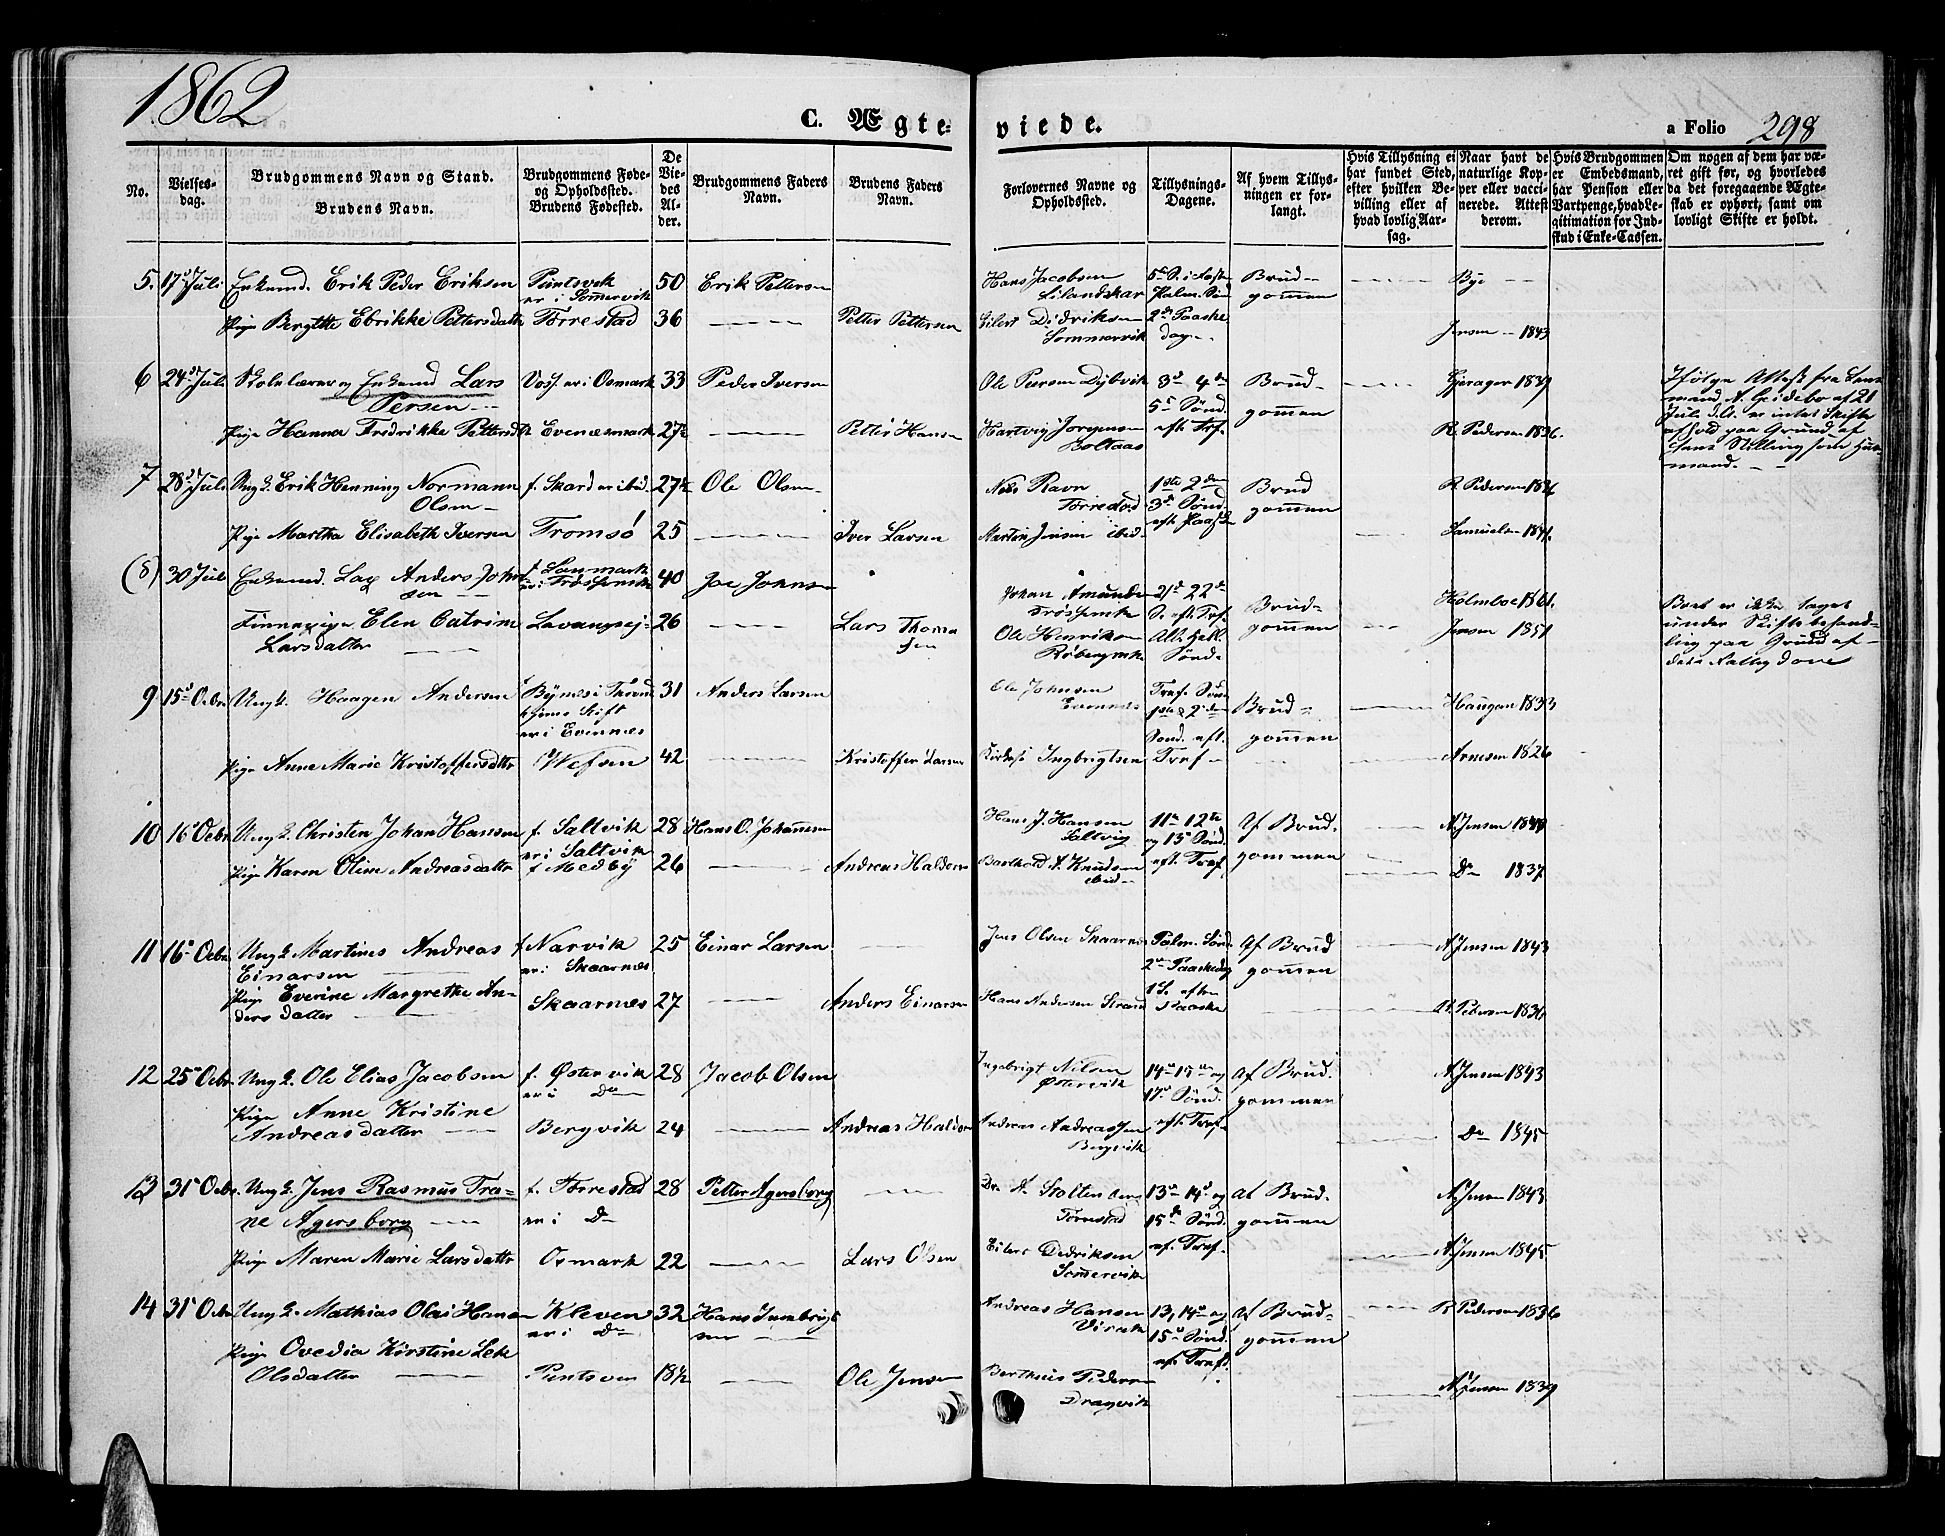 1862
C. Ægte-
viede.
a Folio 298
No.
Vielses-
dag.
Brudgommens Navn og Stand.
Brudens Navn.
Brudgommens Føde-
og Opholdssted.
Brudens Fødested.
De
Vie-
des
Al-
der.
Brudgommens Faders
Navn.
Brudens Faders
Navn.
Forlovernes Navne og
Opholdssted.
Tillysnings-
Dagene.
Af hvem Tillys-
ningen er for-
langt.
Hvis Tillysning ei
har fundet Sted,
efter hvilken Be-
villing eller af
hvad lovlig Aar-
sag.
Naar havt de
naturlige Kop-
per eller vacci-
nerede. Attest
derom.
Hvis Brudgommen
er Embedsmand,
har Pension eller
Vartpenge, hvad Le-
gitimation for Ind-
skud i Enke-Cassen.
Om nogen af dem har væ-
ret gift før, og hvorledes
da det foregaaende Ægte-
skab er ophørt, samt om
lovligt Skifte er holdt.
5. 17 Juli Enkemd. Erik Peder Eriksen
Puntsvik
er i Sommervik
50 Erik Pettersen
Hans Jacobsen
Lilandskar
5 S. i Faste
Palm. Sønd
Brud-
gommen
Bye
Pige Bergitte Ebrikke Pettersdattr Torrestad 36 Petter Pettersen
Eilert Didriksen
Sommervik
2den Paaske
dag
Jensen 1843
6 24 Juli Skolelærer og Enkemd Lars
Persen
Voss. er i Osmark 33 Peder Iversen
Ole Persen Dybvik
3d 4de
5 Sønd.
eft. Trf.
Brud-
gommen
Gjerager 1839
Ifølge Attest fra Lens
mand A. Heidebo af 21
Juli d.A. er intet Skifte
afhold paa Grund af
hans Stilling som Huus
mand.
Pige Hanna Fredrikke Pettersdtr Evenæsmark 27½ Petter Hansen
Hartvig Jørgensen
Boltaas
R. Pedersen 1836.
7 28 Juli Ungk. Erik Henning Normann
Olsen
f. Skard er ibid. 27½ Ole Olsen
Nils Ravn
Torrestad
1ste 2den
3de Sønd.
eft. Paaske
Brud
gommen
R. Pedersen 1836
Pige Martha Elisabeth Iversen Tromsö 25 Iver Larsen
Martin Jensen ibid.
Samuelsen 1841
(8) 30 Juli Enkemd. Lap Anders John
sen
f. Lanmark
er i Trøssemrk
40 Joe Johnsen
Johan Amundsen
Trøssemk
21de 22de
S. eft. Trf.
Alle Hell.
Sønd.
Brud-
gommen
Holmboe 1861.
Boet er ikke taget
under Skiftebehand-
ling paa Grund af
dets Fattigdom
Finnepige Elen Catrine
Larsdatter
Lavangsej. 26 Lars Thomas
sen
Ole Henriksen
Røbergmk
Jensen 1851
9 15 Ocbr. Ungk. Haagen Andersen
f. Bynes i Thrond
hjems Stift
er i Evenæs
31 Anders Larsen
Ole Johnsen
Evenæs
Tref. Sønd
1ste & 2den
Sønd. eft.
Tref.
Brud-
gommen
Haugan 1833
Pige Anne Marie Kristoffersdattr Wefsen 42 Kristoffer Larsen
Ingbrigtsen
Arnesen 1826
10 16 Ocbr. Ungk. Christen Johan Hansen
f. Saltvik
er i Saltvik
28 Hans O. Johannsen
Hans J. Hansen
Saltvig
11te 12te
og 13 Sønd.
eft. Tref.
Af Brud.
gommen
A. Jensen 1843
Pige Karen Oline Andreasdattr f Medby 26 Andreas Haldors
Barthold A. Knudsen
ibid
Do 1837
11 16 Ocbr. Ungk. Martines Andreas
Einarsen
f Narvik
er i Skaarnæs
25 Einar Larsen
Jens Olsen Skaarnæs
Palm. Sønd.
2den Paaskedag
1 S. efter
Paaske
Af Brud
gommen
A. Jensen 1843
Pige Everine Margrethe An-
ders datter
Skaarnæs 27 Anders Einarsen
Hans Andersen Strand
R. Pedersen 1836
12 25 Ocbr. Ungk. Ole Elias Jacobsen
f. Østervik
er i Do
28 Jacob Olsen
Ingebrigt Nilsen
Østervik
14de 15de og
17de Sønd.
eft. Tref.
Af Brud.
gommen
A. Jensen 1843
Pige Anne Kristine
Andreasdatter
Bergvik 24 Andreas Haldor
Andreas Andreassen
Bergvik
Do 1845
13 31 Ocbr. Ungk. Jens Rasmus Tra-
ne Agersborg
f. Torrestad
er i Do
28 Petter Agersborg
Dr. A. Stoltenberg
Torrestad
13de 14de og
15de Sønd.
ef. Tref.
Af Brud.
gommen
A. Jensen 1843
Pige Maren Marie Larsdattr Osmark 22 Lars Olsen
Eilert Dedriksen
Sommervik
A. Jensen 1845
14 31 Ocbr Ungk. Mathias Olai Hansen
Kleven
er i Do
32 Hans Ingebrigt
sen
Andreas Hansen
Virak
13, 14de og
15de Sønd.
ef. Tref.
Af Brud-
gommen
R. Pedersen 1836
Pige Ovedia Kirstine Leke
Olsdatter
18½ Ole Jensen
Berthius Pedersen
Dragvik
A. Jensen 1839